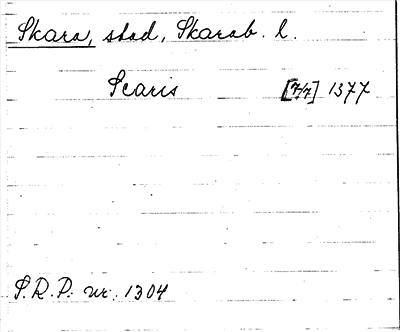 Skara, stad, Skarab. l.
Scaris [7/7] 1377
S.R.P. nr. 1304